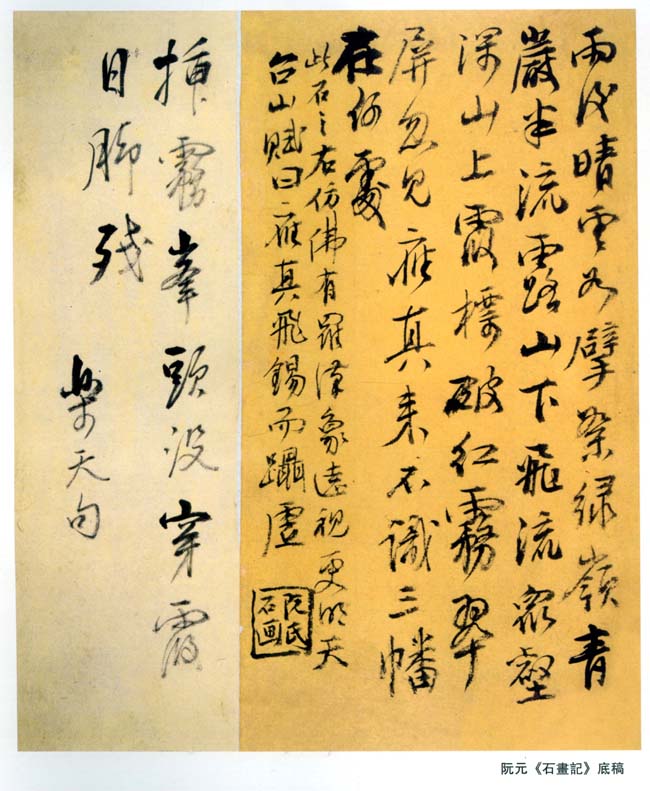 雨後晴雲如擘絮綠嶺青
巖半流露山下飛流衆壑
深山上霞標破紅霧翠
屏忽見應真來不識三幡
在何處
此石之右仿佛有羅漢象遠視更明天
台山賦曰應真飛錫而躡虛
阮氏
石画
插霧峯頭没穿霞
日脚殘
樂天句
阮元《石畫記》底稿